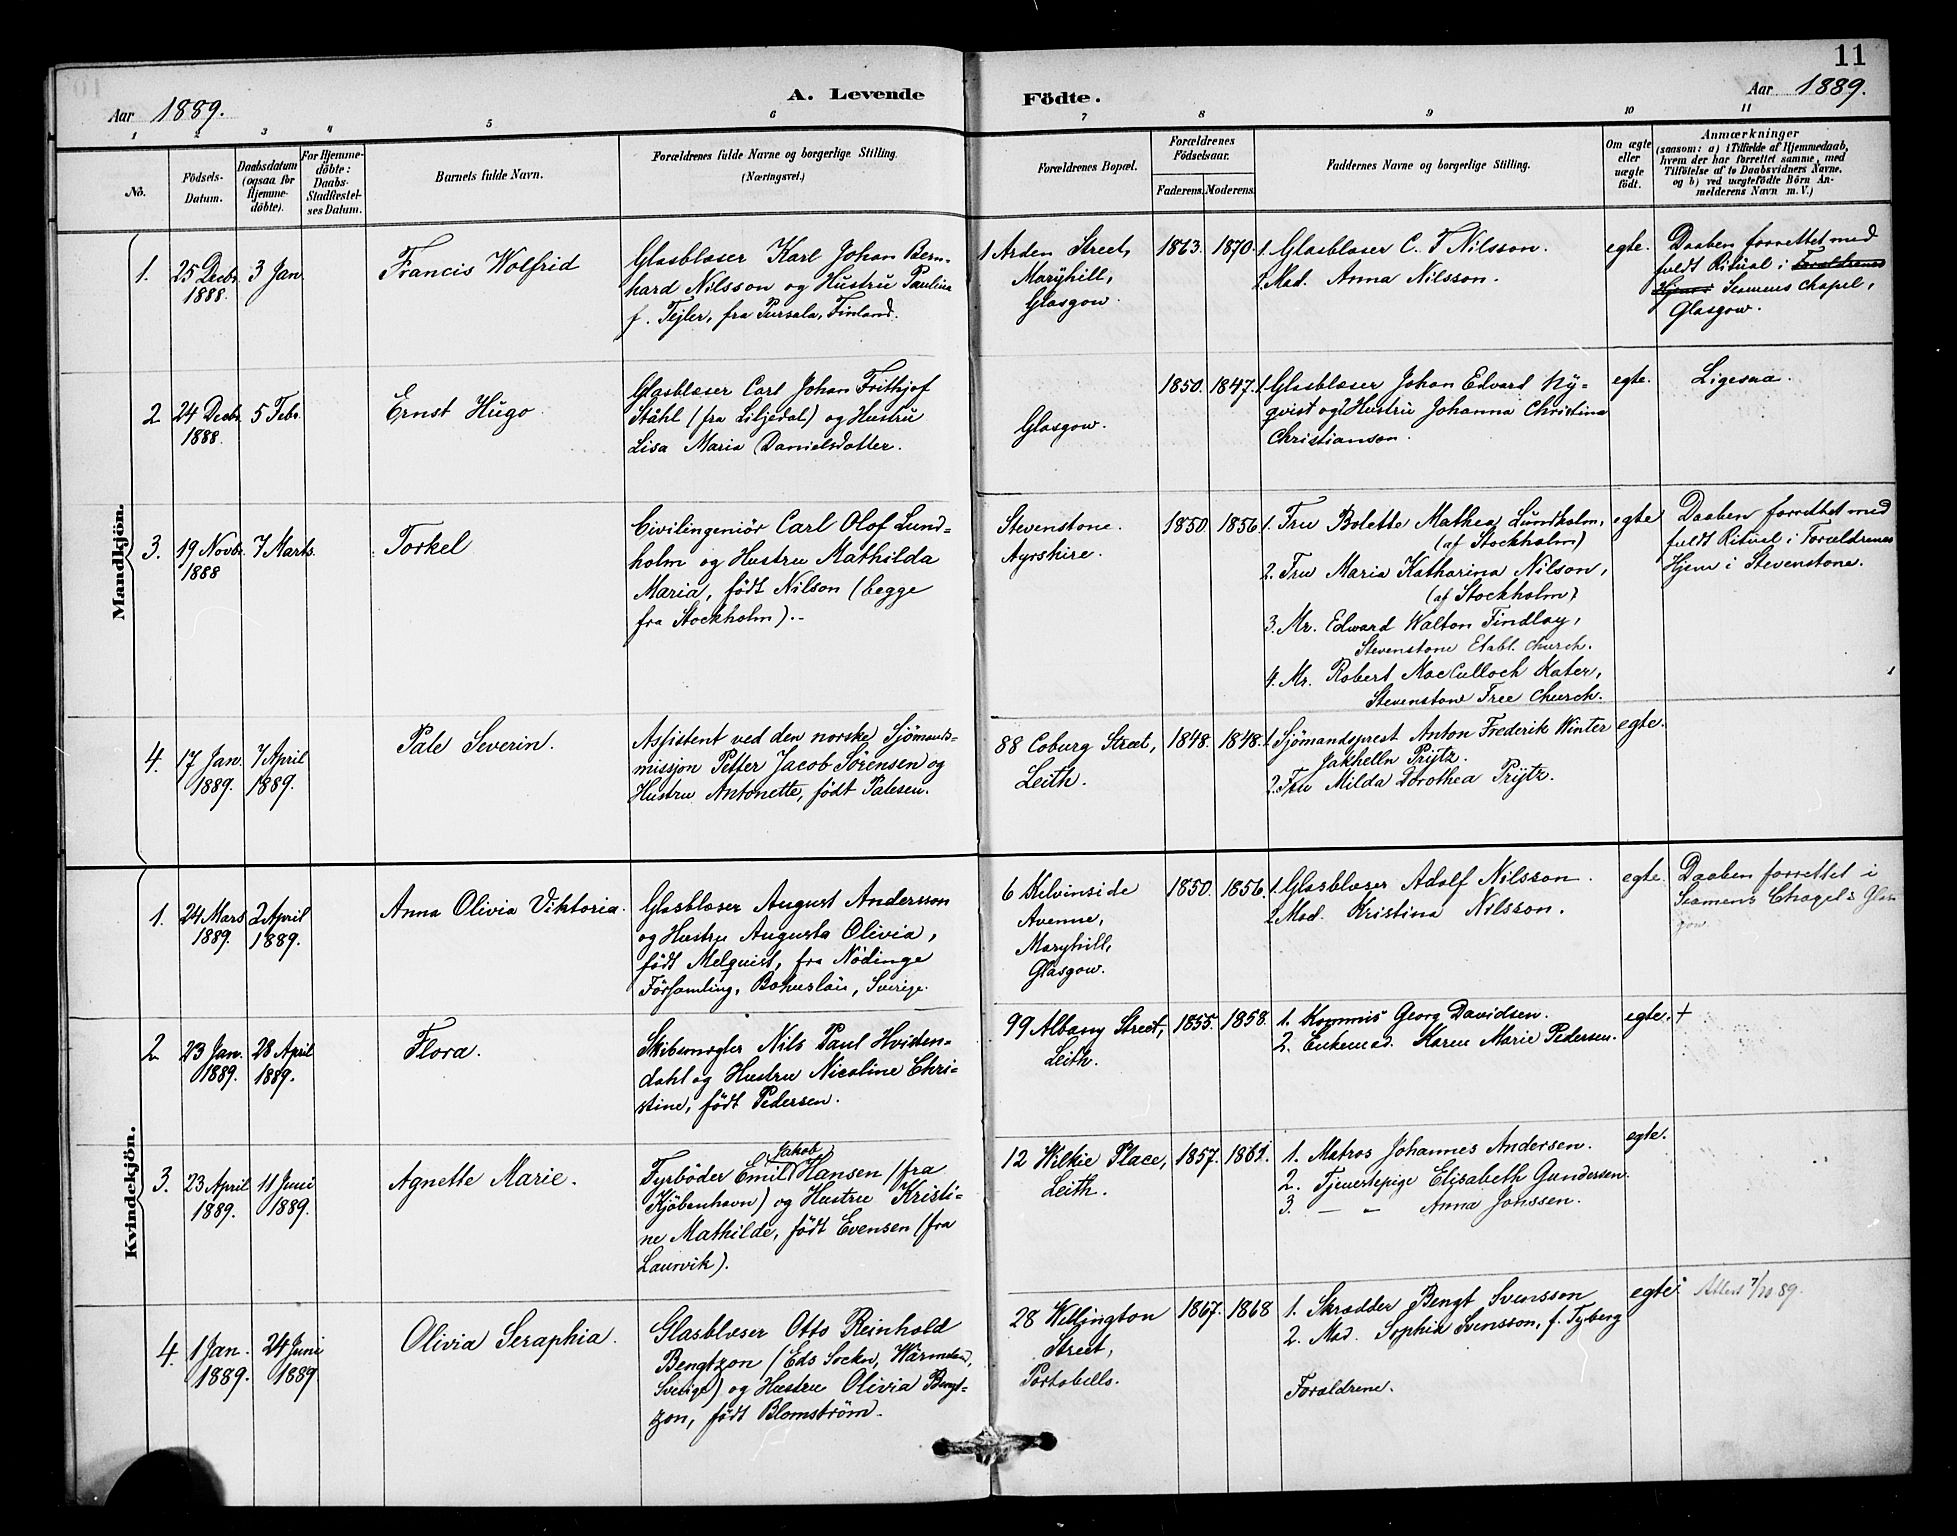 11
Aar 1889.
A. Levende Födte.
Aar 1889.
1 2 3 4 5 6 7 8 9 10 11
No.
Födsels-
Datum.
Daabsdatum
(ogsaa for
Hjemme-
döbte).
For Hjemme-
döbte:
Daabs-
Stadfæstel-
ses Datum.
Barnets fulde Navn.
Forældrenes fulde Navne og borgerlige Stilling.
(Næringsvei.)
Forældrenes Bopæl.
Forældrenes
Födselsaar.
Faderens. Moderens.
Faddernes Navne og borgerlige Stilling.
Om ægte
eller
uægte
født.
Anmærkninger
(saasom: a) i Tilfælde af Hjemmedaab,
hvem der har forrettet samme, med
Tilföielse af to Daabsvidners Navne.
og b) ved uægtefödte Börn An-
melderens Navn m. V.)
Mandkjön.
1.
25 Decbr.
1888.
3 Jan.
Francis Wolfrid
Glasblæser Karl Johan Bern-
hard Nilsson og Hustru Paulina
f. Tejler, fra Pursala, Finland.
1 Arden Street,
Maryhill,
Glasgow.
1863.
1870.
1. Glasblæser C. F Nilsson.
2. Mad. Anna Nilsson.
egte.
Daaben forrettet med
fuldt Ritual i Forældrenes
Hjem i Seamens Chapel,
Glasgow.
2
24 Decbr.
1888.
5 Febr.
Ernst Hugo.
Glasblæser Carl Johan Frithjof
Ståhl (fra Liljedal) og Hustru
Lisa Maria Danielsdotter.
Glasgow.
1850.
1847.
1. Glasblæser Johan Edvard Ny-
qvist og 2 Hustru Johanna Christina
Christianson.
egte.
Ligesaa.
3.
19 Novbr.
1888
7 Marts.
Torkel
Civilingeniör Carl Olof Lund-
holm og Hustru Mathilda
Maria, født Nilson (begge
fra Stockholm).
Stevenstone.
Ayrshire.
1850
1856
1. Fru Bolette Mathea Lundholm,
(af Stockholm)
2. Fru Maria Katharina Nilson,
(af Stockholm)
3. Mr. Edward Walton Findlay,
Stevenstone Etabl. Church.
4. Mr. Robert MacCulloch Kater,
Stevenstow Free Church.
egte
Daaben forrettet med
fuldt Ritual i Forældrenes
Hjem i Stevenstone.
4.
17 Jan.
1889.
7 April
1889.
Pale Severin.
Assistent ved den norske Sjömands-
missjon Petter Jacob Sörensen og
Hustru Antonette, født Palesen.
88 Coburg Street,
Leith.
1848.
1848.
1. Sjömandsprest Anton Frederik Winter
Jakhelln Prÿtz.
2. Fru Milda Dorothea Prÿtz.
egte.
Kvindekjön.
1.
24 Mars
1889.
2 April
1889.
Anna Olivia Viktoria.
Glasblæser August Andersson
og Hustru Augusta Olivia,
født Melquist, fra Nödinge
Församling, Bohuslän, Sverige.
6 Kelvinside
Avenue,
Maryhill,
Glasgow.
1850.
1856.
1. Glasblæser Adolf Nilsson.
2. Mad. Kristina Nilsson.
egte.
Daaben forrettet i
Seamens Chapel i Glas
gow.
2
23 Jan.
1889.
28 April
1889.
Flora.
Skibsmægler Nils Paul Hvisten-
dahl og Hustru Nicoline Chri-
stine, født Pedersen.
99 Albany Street,
Leith.
1855.
1858.
1. Kommis Georg Davidsen.
2. Enkemad. Karen Marie Pedersen.
egte.
+
3.
23 April
1889.
11 Juni
1889.
Agnette Marie.
Jakob
Fyrböder Emil Hansen (fra
Kjöbenhavn) og Hustru Kristi-
ne Mathilde, født Evensen (fra
Laurvik).
12 Wilkie Place,
Leith.
1857.
1861.
1. Matros Johannes Andersen.
2. Tjenestepige Elisabeth Gundersen.
3. — „ Anna Jonssen.
egte.
4.
1 Jan.
1889.
24 Juni
1889
Olivia Seraphia.
Glasblæser Otto Reinhold
Bengtzon (Eds Sockn, Wärmland,
Sverige) og Hustru Olivia Bengt-
zon, født Blomström.
28 Wellington
Street,
Portobello.
1867.
1868
1. Skrædder Bengt Svensson
2. Mad. Sophia Svensson, f. Tyberg
Forældrene.
egte
Attest 7/10 89.